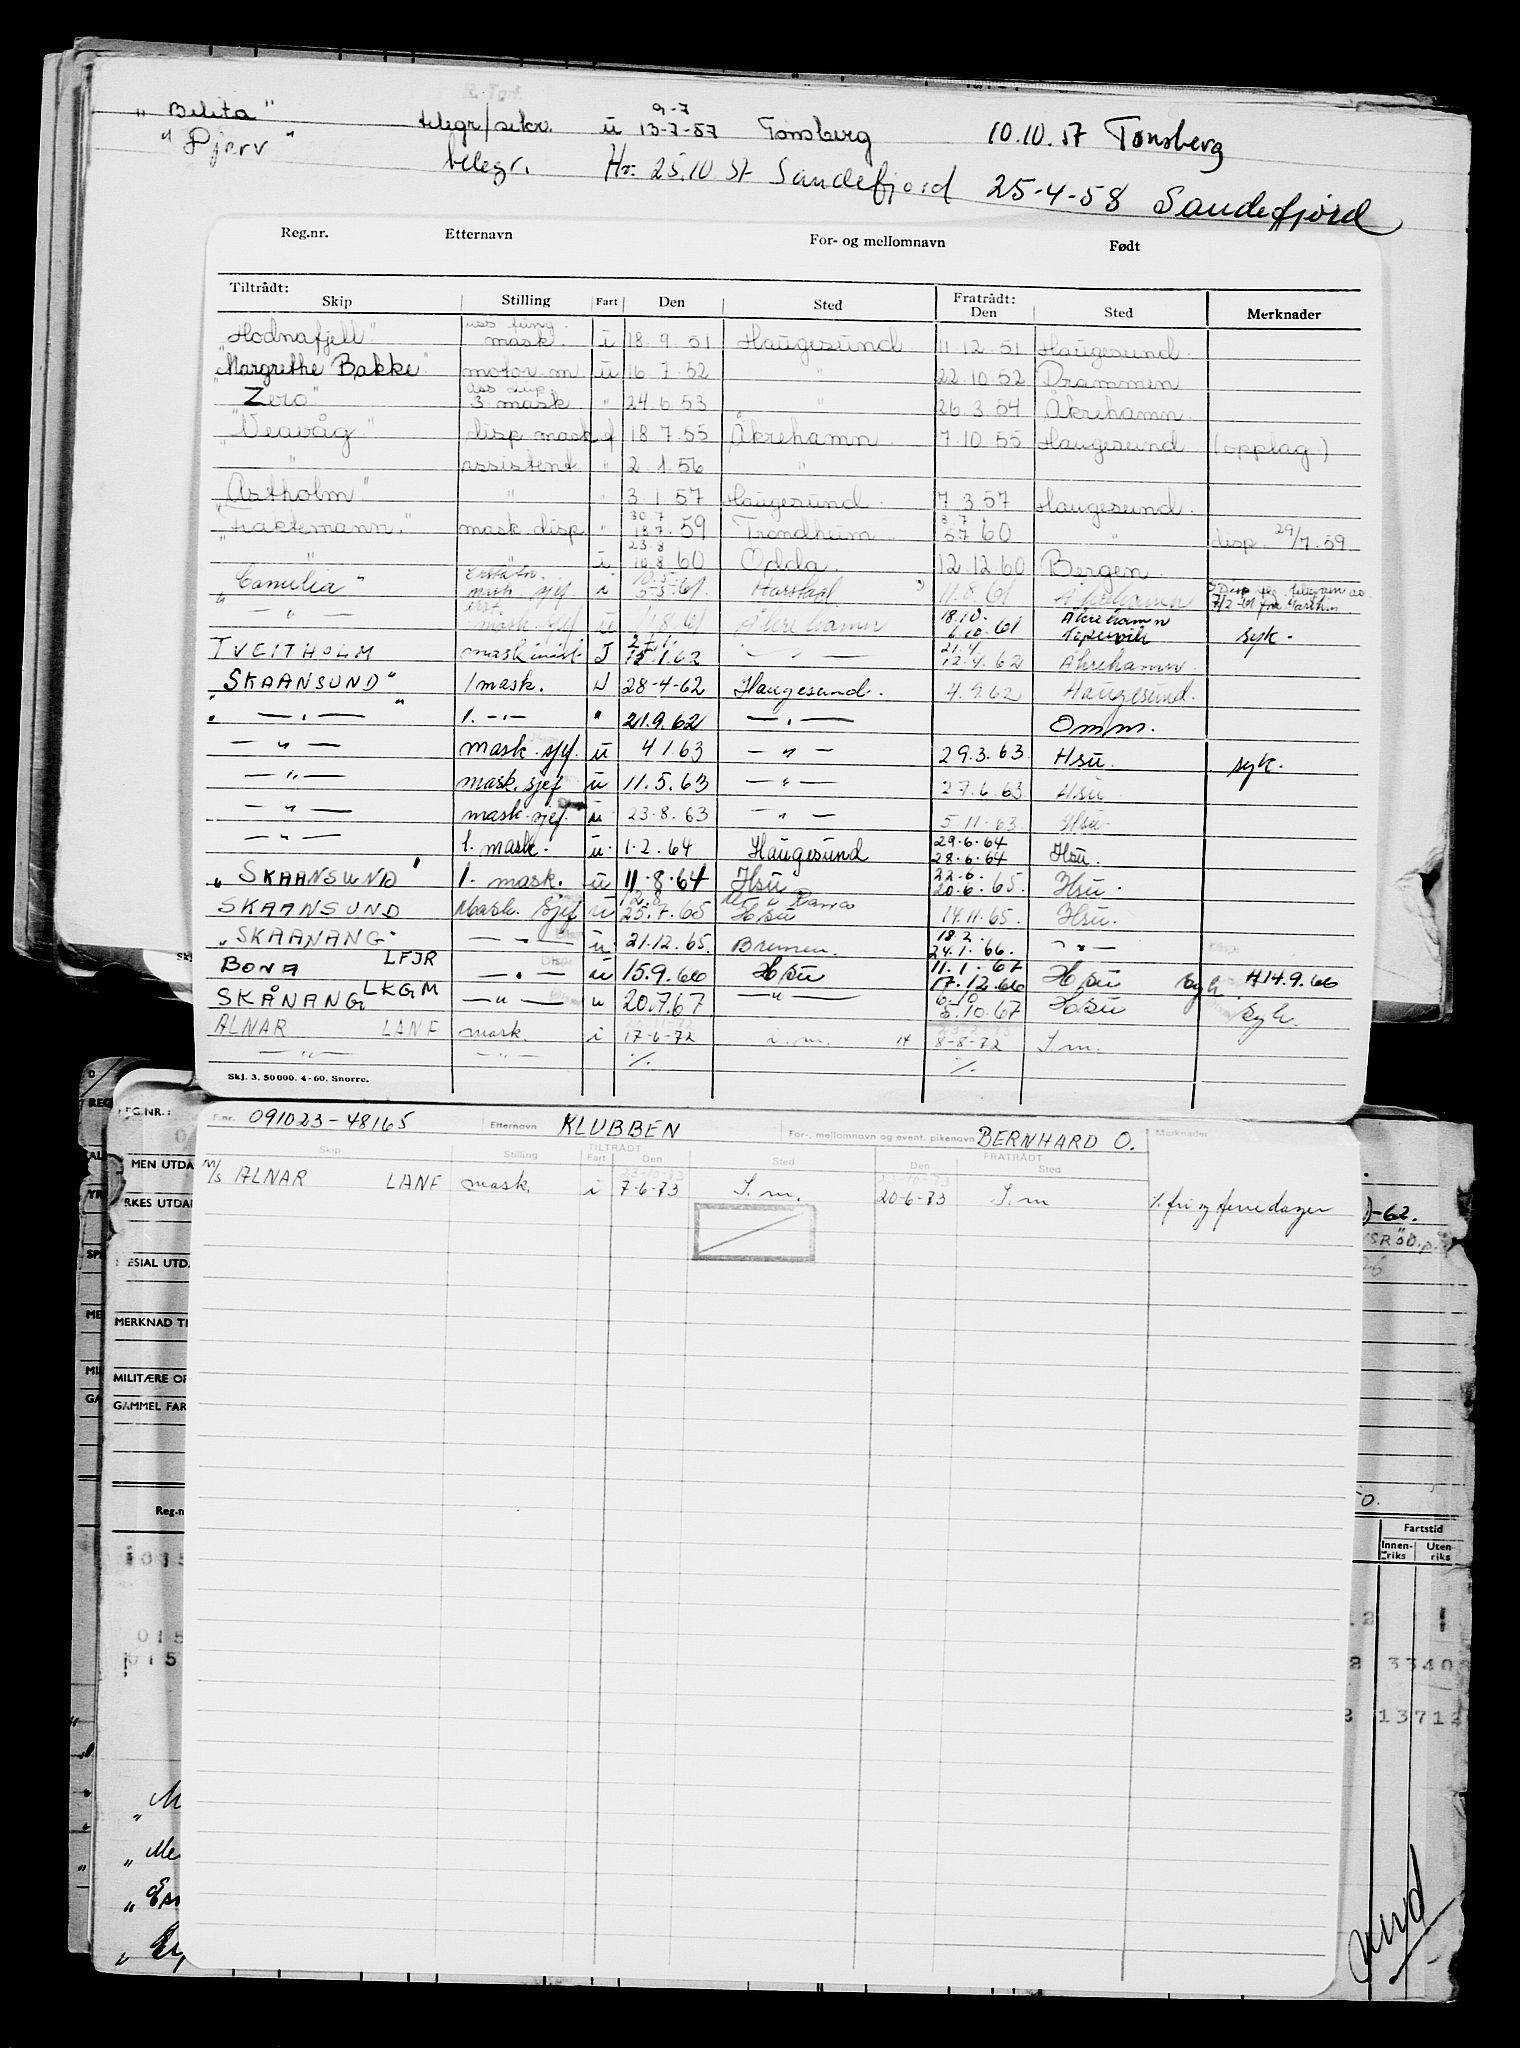 "Belita" telegr/sekr. u 9-7 13-7-57 Tønsberg 10.10.57 Tønsberg
"Pjerv" telegr. Hr: 25.10.57 Sandefjord 25-4-58 Sandefjord
Reg.nr. Etternavn For- og mellomnavn Født
Tiltrådt: Fratrådt:
Skip Stilling Fart Den Sted Den Sted Merknader
"Hodnafjell" ass fung. mask. i 18.9.51 Haugesund 11.12.51 Haugesund
"Margrethe Bakke" motor m u 16.7.52 " 22.10.52 Drammen
"Zero" ass disp 3 mask " 24.6.53 " 26.3.54 Åkrehamn
"Veavåg" disp mask f 18.7.55 Åkrehamn 7.10.55 Haugesund (opplag)
" assistent " 2.1.56 "
"Astholm" " " 3.1.57 Haugesund 7.3.57 Haugesund
"Fraktemann" mask. disp " 30.7 18.7.59 Trondheim 60 " disp. 29/7.59
" " i 23.8 10.8 60 Odda 12.12.60 Bergen
"Camilia" mask. sjef i 5-3-61 Harstad 11.8.61 Åkrehamn
— " — erst. mask. sjef u 61 Åkrehamn 18.10. 6.10.61 Åkrehamn Kopervik syk.
TVEITHOLM mask J 1.62 — " — 21.4 12.4.62 Åkrehamn
"SKAANSUND" 1 mask. U 28-4-62 Haugesund. 4.9.62 Haugesund.
" — " — 1. — " — " 21.9.62 — " — Omm.
— " — mask. sjef. u 4 1.63 — " — 29.3.63 Hsu. syk.
— " — mask. sjef u 11.5.63 — " — 27.6.63 Hsu
— " — mask. sjef. u 23.8.63 — " — 5.11.63 Hsu
— " — 1. mask. u 1.2.64 Haugesund 29.6.64 28.6.64 Hsu.
"SKAANSUND" 1. mask. u 11.8.64 Hsu 22.6. 20.6.65. Hsu.
SKAANSUND Mask. sjef u 12.8 25.7.65 Hsu 14.11.65. Hsu.
"SKAANANG" — " — u 21.12.65. Bremen. 18.2. 24.1.66. — " —
BONA LFJR — " — u 15.9.66 Hsu 11.1.67 17.12.66 Hsu syk. 14.9.66
SKÅNANG LKGM — " — u 20.7.67 — " — 6.10 5.10.67 Hsu syk.
ALNAR LANF mask. i 17-6-72 i.m. 8-8-72 I.m.
— " — — " — ./. ./.
Skj. 3. 50 000. 4-60. Snorre.
F.nr. 091023-48165 Etternavn KLUBBEN For-, mellomnavn og event. pikenavn BERNHARD O. Merknader
TILTRÅDT FRATRÅDT
Skip Stilling Fart Den Sted Den Sted
M/S ALNAR LANF mask. i 23-10-73 7-6-73 I.m. 23-10-73 20-6-73 I.m ./. fri og feriedager
REG.NR.:
MEN UTDA
RKES UTDA
ESIAL UTD
MERKNAD TI
MILITÆRE OP
GAMMEL FAR
-62.
Reg.n
Fartstid
Innenriks Utenriks
015
015
015
3340
13712
"M
"Me
"Es